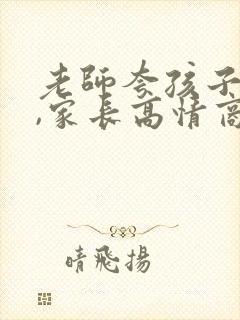 老師夸孩子
,家長高情商
晴飛揚